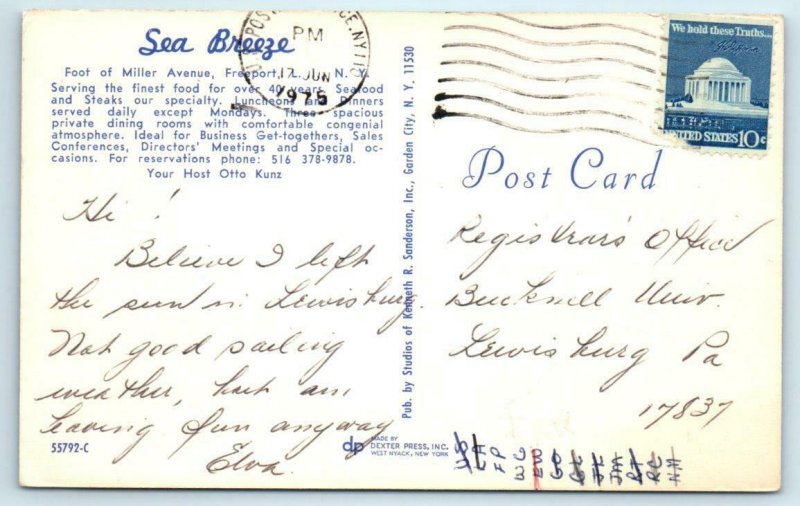 Sea Breeze
Foot of Miller Avenue, Freeport, L. I., N. Y.
Serving the finest food for over 40 years. Seafood
and Steaks our specialty. Luncheons and Dinners
served daily except Mondays. Three spacious
private dining rooms with comfortable congenial
atmosphere. Ideal for Business Get-togethers, Sales
Conferences, Directors' Meetings and Special oc-
casions. For reservations phone: 516 378-9878.
Your Host Otto Kunz
Hi!
Believe I left
the sun in Lewisburg.
Not good sailing
weather, but am
having fun anyway
Elva.
55792-C
dp
MADE BY
DEXTER PRESS, INC.
WEST NYACK, NEW YORK
Pub. by Studios of Kenneth R. Sanderson, Inc., Garden City, N. Y. 11530
U.S. POST OFFICE, NY
PM
17 JUN
1975
We hold these Truths...
UNITED STATES 10c
Post Card
Registrar's Office
Bucknell Univ.
Lewisburg Pa
17837
LH
FP